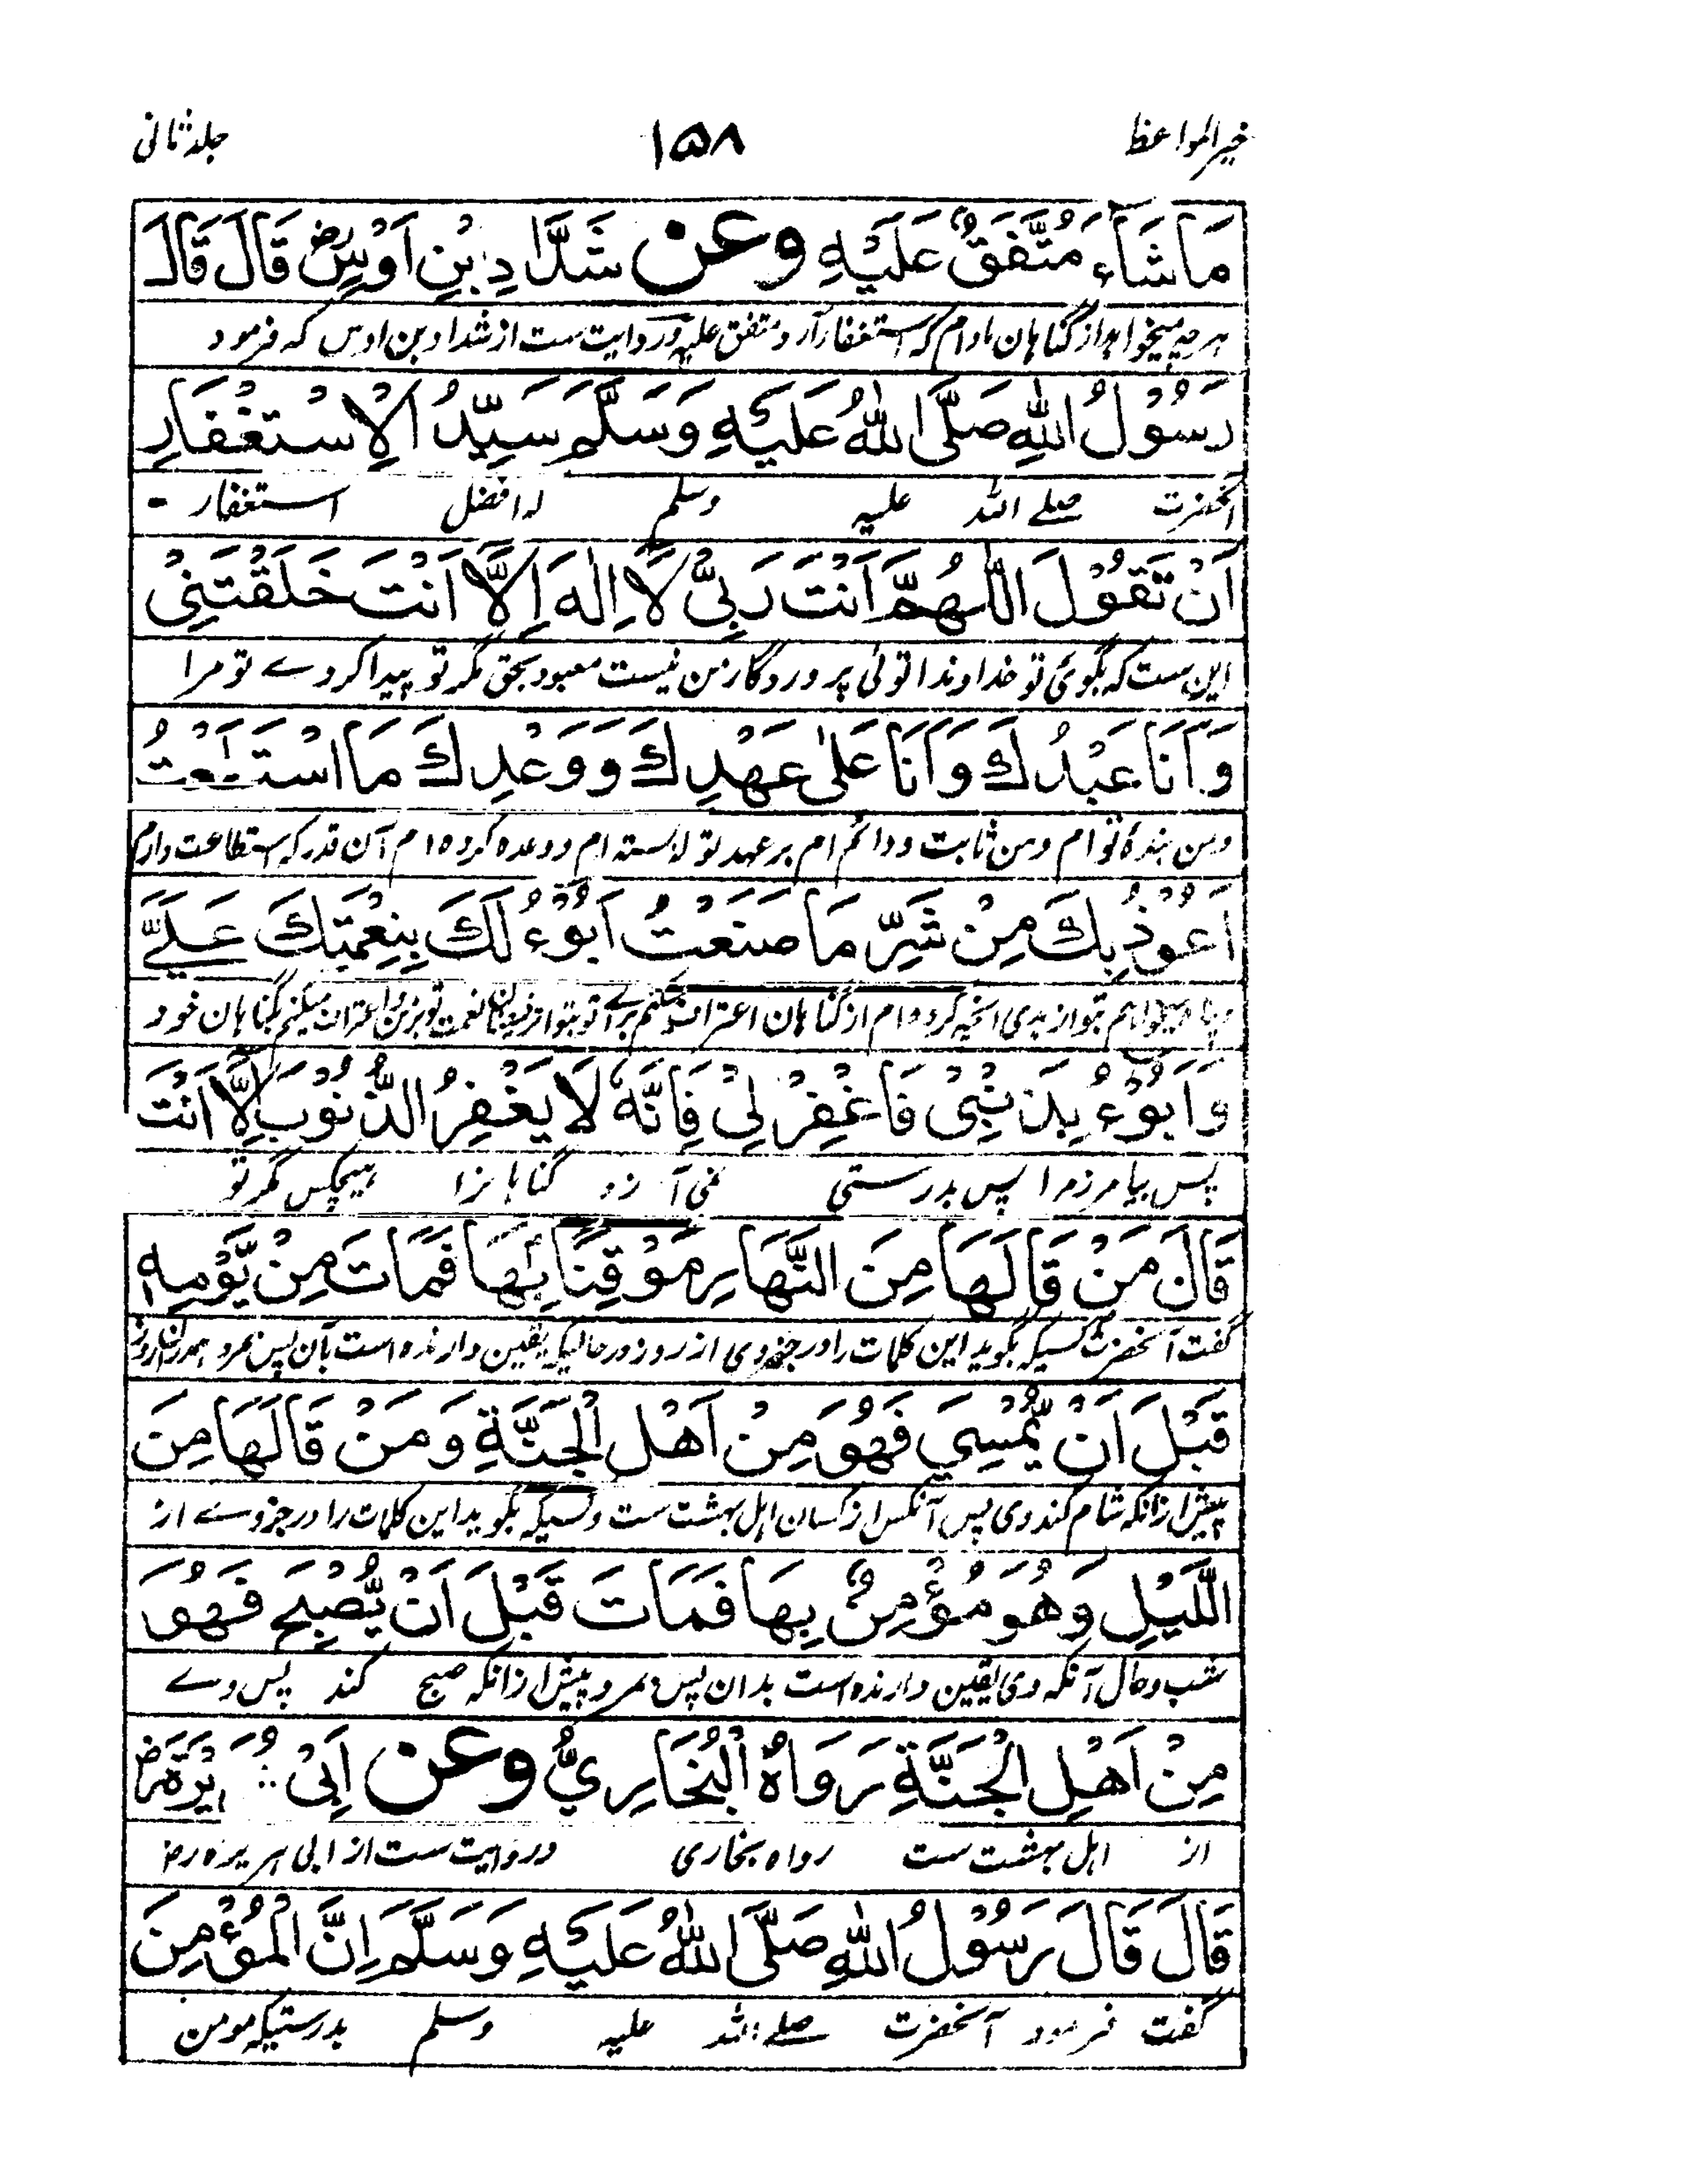 خیر المواعظ ۱۵۸ جلد ثانی
مَا شَاءَ مُتَّفَقٌ عَلَيْهِ وعن شَدَّادِ بْنِ اَوْسٍ رض قَالَ قَالَ
هرچه میخواهد از گناهان مادام که استغفار آرد متفق علیه و روایت ست از شداد بن اوس که فرمود
رَسُوْلُ اللّٰهِ صَلَّى اللّٰهُ عَلَيْهِ وَسَلَّمَ سَيِّدُ الْاِسْتِغْفَارِ
آنحضرت صلے اللہ علیہ وسلم که افضل استغفار -
اَنْ تَقُوْلَ اللّٰهُمَّ اَنْتَ رَبِّىْ لَا اِلٰهَ اِلَّا اَنْتَ خَلَقْتَنِىْ
این ست که بگوئ تو خداوندا توئی پروردگار من نیست معبود بحق مگر تو پیدا کردے تو مرا
وَاَنَا عَبْدُكَ وَاَنَا عَلٰى عَهْدِكَ وَوَعْدِكَ مَا اسْتَطَعْتُ
ومن بندۂ توام ومن ثابت ودائم ام بر عهد تو که بسته ام ووعده کرده ام آن قدر که استطاعت دارم
اَعُوْذُ بِكَ مِنْ شَرِّ مَا صَنَعْتُ اَبُوْءُ لَكَ بِنِعْمَتِكَ عَلَىَّ
از بدی آنچه کرده ام از گناهان اعتراف میکنم براے تو نعمت تو بر من و اعتراف میکنم بگناهان خود
وَاَبُوْءُ بِذَنْبِىْ فَاغْفِرْ لِىْ فَاِنَّهٗ لَا يَغْفِرُ الذُّنُوْبَ اِلَّا اَنْتَ
پس بیامرز مرا پس بدرستی نمی آمرزد گناهانرا هیچکس مگر تو
قَالَ مَنْ قَالَهَا مِنَ النَّهَارِ مَوْقِنًا بِهَا فَمَاتَ مِنْ يَّوْمِهٖ
گفت آنحضرت کسیکه بگوید این کلمات را در جزوی از روز در حالیکه یقین دارنده است بآن پس بمرد همدران روز
قَبْلَ اَنْ يُّمْسِيَ فَهُوَ مِنْ اَهْلِ الْجَنَّةِ وَمَنْ قَالَهَا مِنَ
پیش از انکه شام کند وی پس آنکس از کسان اهل بهشت ست وکسیکه بگوید این کلمات را در جزوے از
اللَّيْلِ وَهُوَ مُؤْمِنٌ بِهَا فَمَاتَ قَبْلَ اَنْ يُّصْبِحَ فَهُوَ
شب وحال آنکه وی یقین دارنده است بدان پس بمرد پیش از انکه صبح کند پس وے
مِنْ اَهْلِ الْجَنَّةِ رَوَاهُ الْبُخَارِيُّ وعن اَبِىْ هُرَيْرَةَ رض
از اهل بهشت ست رواه بخاری و روایت ست از ابی هریره رض
قَالَ قَالَ رَسُوْلُ اللّٰهِ صَلَّى اللّٰهُ عَلَيْهِ وَسَلَّمَ اِنَّ الْمُؤْمِنَ
گفت فرمود آنحضرت صلے اللہ علیہ وسلم بدرستیکه مومن